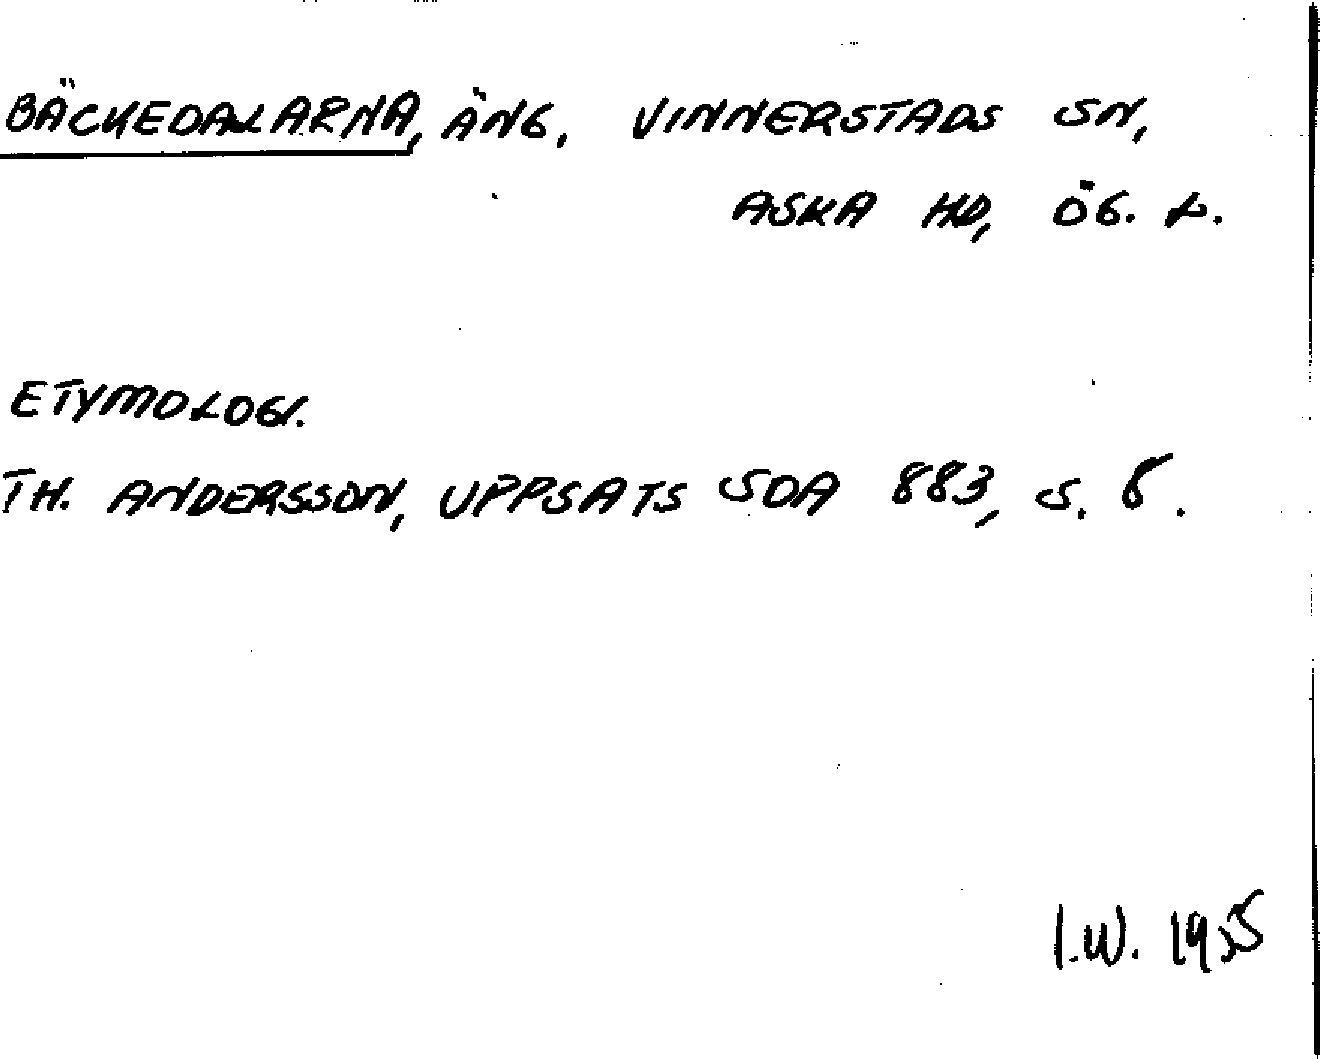 BÄCKEDALARNA, ÄNG, VINNERSTADS SN,
ASKA HD, ÖG. L.
ETYMOLOGI.
TH. ANDERSSON, UPPSATS SOA 883, S. 8.
I.W. 1955